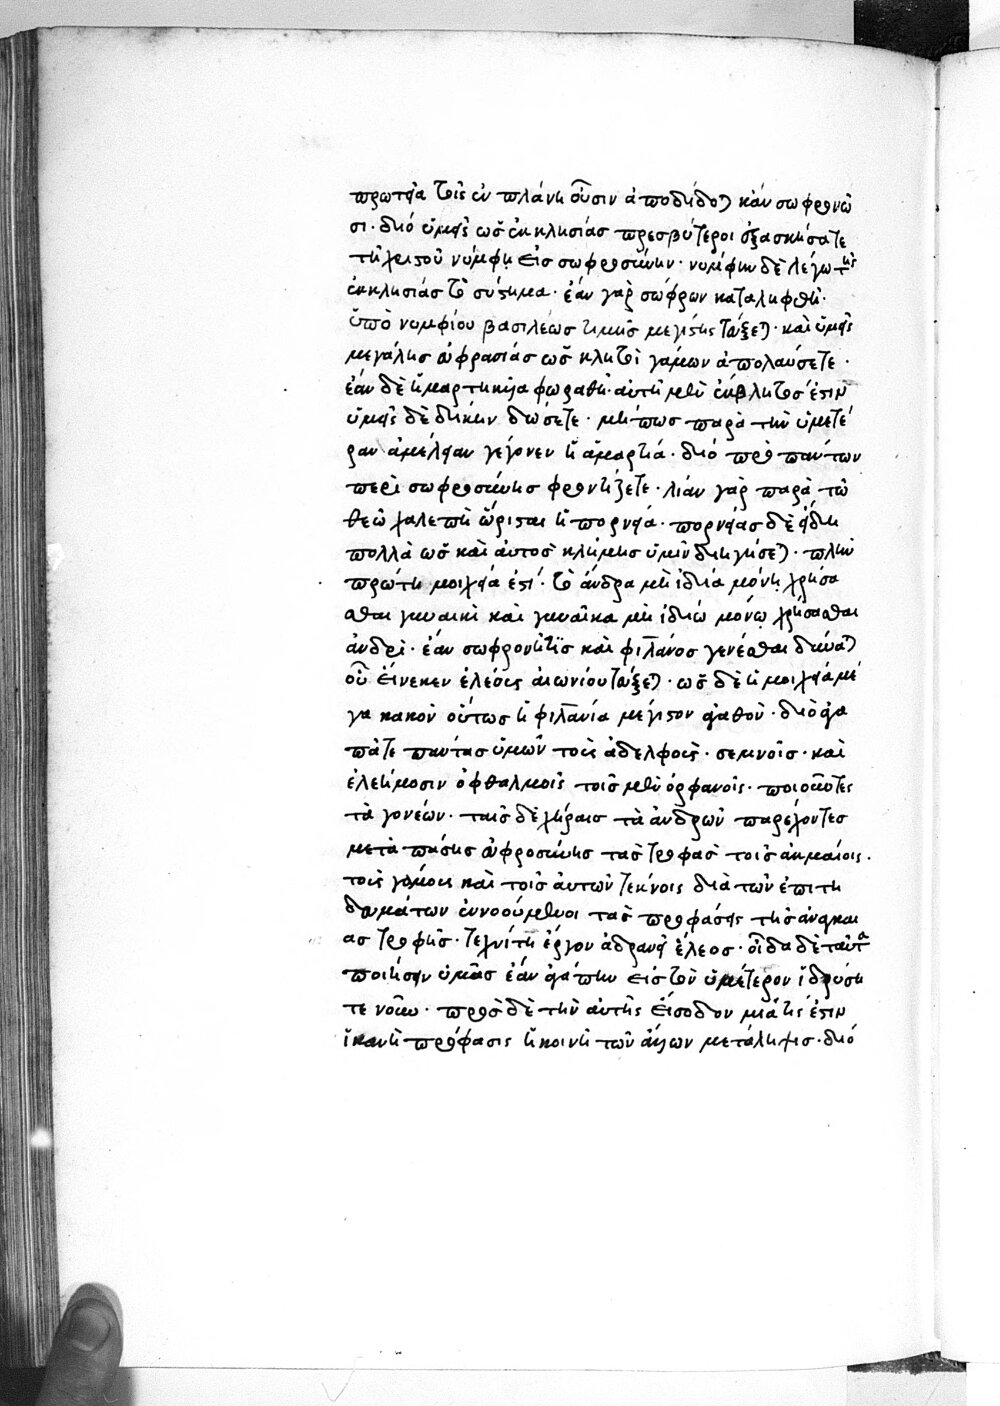 πρωτεῖα τοῖς ἐν πλάνη οὖσιν ἀποδίδοται κἂν σωφρονῶ
σι· διὸ ὑμεῖς ὡς ἐκκλησίας πρεσβύτεροι ἐξασκήσατε
τὴν χριστοῦ νύμφην εἰς σωφροσύνην· νύμφην δὲ λέγω τῆς
ἐκκλησίας τὸ σύστημα· ἐὰν γὰρ σώφρων καταληφθῆ·
ὑπὸ νυμφίου βασιλέως τιμῆς μεγίστης τεύξεται· καὶ ὑμεῖς
μεγάλης εὐφρασίας ὡς κλητοὶ γάμων ἀπολαύσετε·
ἐὰν δὲ ἡμαρτηκυῖα φωραθῆ· αὐτὴ μὲν ἔκβλητος ἐστὶν
ὑμεῖς δὲ δίκην δώσετε· μήπως παρὰ τὴν ὑμετέ
ραν ἀμέλειαν γέγονεν ἡ ἁμαρτία· διὸ πρὸ πάντων
περὶ σωφροσύνης φροντίζετε· λίαν γὰρ παρὰ τῶ
θεῶ χαλεπὴ ὥρισται ἡ πορνεία· πορνείας δὲ εἴδη
πολλὰ ὡς καὶ αὐτὸς κλήμης ὑμῖν διηγήσεται· πλὴν
πρώτη μοιχεία ἐστί· τὸ ἄνδρα μὴ ἰδία μόνη χρῆσα
σθαι γυναικὶ καὶ γυναῖκα μὴ ἰδίω μόνω χρήσασθαι
ἀνδρὶ· ἐὰν σωφρονῆ τὶς καὶ φιλάνος γενέσθαι δύναται
οὗ εἵνεκεν ἐλέους αἰωνίου τεύξεται· ὡς δὲ ἡ μοιχεία μέ
γα κακὸν οὕτως ἡ φιλανία μέγιστον ἀγαθὸν· διὸ ἀγα
πᾶτε πάντας ὑμῶν τοὺς ἀδελφοὺς· σεμνοῖς· καὶ
ἐλεήμοσιν ὀφθαλμοῖς τοῖς μὲν ὀρφανοῖς· ποιοῦντες
τὰ γονέων· ταῖς δὲ χήραις τὰ ἀνδρῶν παρέχοντες
μετὰ πάσης εὐφροσύνης τὰς τροφὰς τοῖς ἀκμαίοις·
τοὺς γάμους καὶ τοῖς αὐτῶν τέκνοις διὰ τῶν ἐπιτη
δευμάτων ἐννοούμενοι τὰς προφάσεις τῆς ἀναγκαι
ας τροφῆς· τεχνίτη ἔργον ἀδρανεῖ ἔλεος· οἶδα δὲ ταῦτα
ποιήσειν ὑμᾶς ἐὰν ἀγάπην εἰς τὸν ὑμέτερον ἱδρύση
τε νοῦν· πρὸς δὲ τὴν αὐτῆς εἴσοδον μία τίς ἐστὶν
ἱκανὴ πρόφασις ἡ κοινὴ τῶν ἁλῶν μετάληψις· διὸ